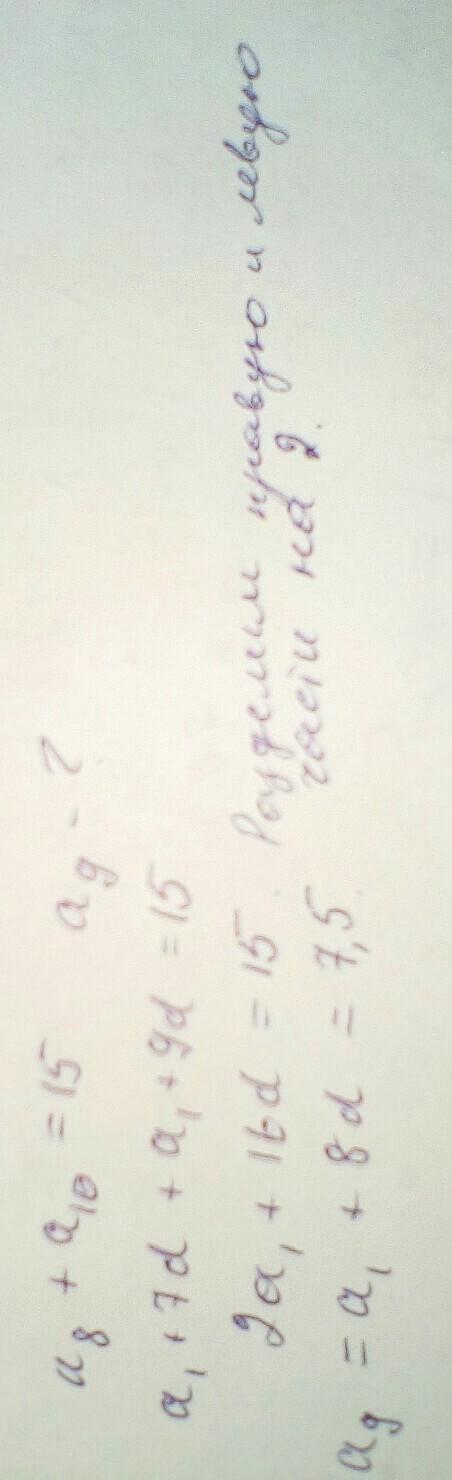 a₈ + a₁₀ = 15 a₉ - ?
a₁ + 7d + a₁ + 9d = 15
2a₁ + 16d = 15. Разделим правую и левую
части на 2.
a₉ = a₁ + 8d = 7,5.